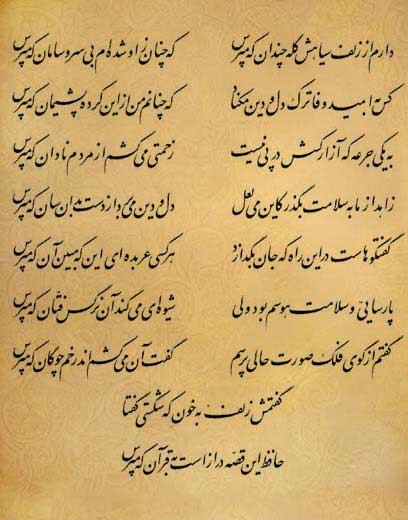 دارم از زلف سیاهش گله چندان که مپرس که چنان زو شده‌ام بی سر و سامان که مپرس
کس به امید وفا ترک دل و دین مکناد که چنانم من از این کرده پشیمان که مپرس
به یکی جرعه که آزار کسش در پی نیست زحمتی می‌کشم از مردم نادان که مپرس
زاهد از ما به سلامت بگذر کاین می لعل دل و دین می‌برد از دست بدان سان که مپرس
گفتگوهاست در این راه که جان بگدازد هر کسی عربده‌ای این که مبین آن که مپرس
پارسایی و سلامت هوسم بود ولی شیوه‌ای می‌کند آن نرگس فتّان که مپرس
گفتم از گوی فلک صورت حالی پرسم گفت آن می‌کشم اندر خم چوگان که مپرس
گفتمش زلف به خون که شکستی گفتا
حافظ این قصّه دراز است به قرآن که مپرس